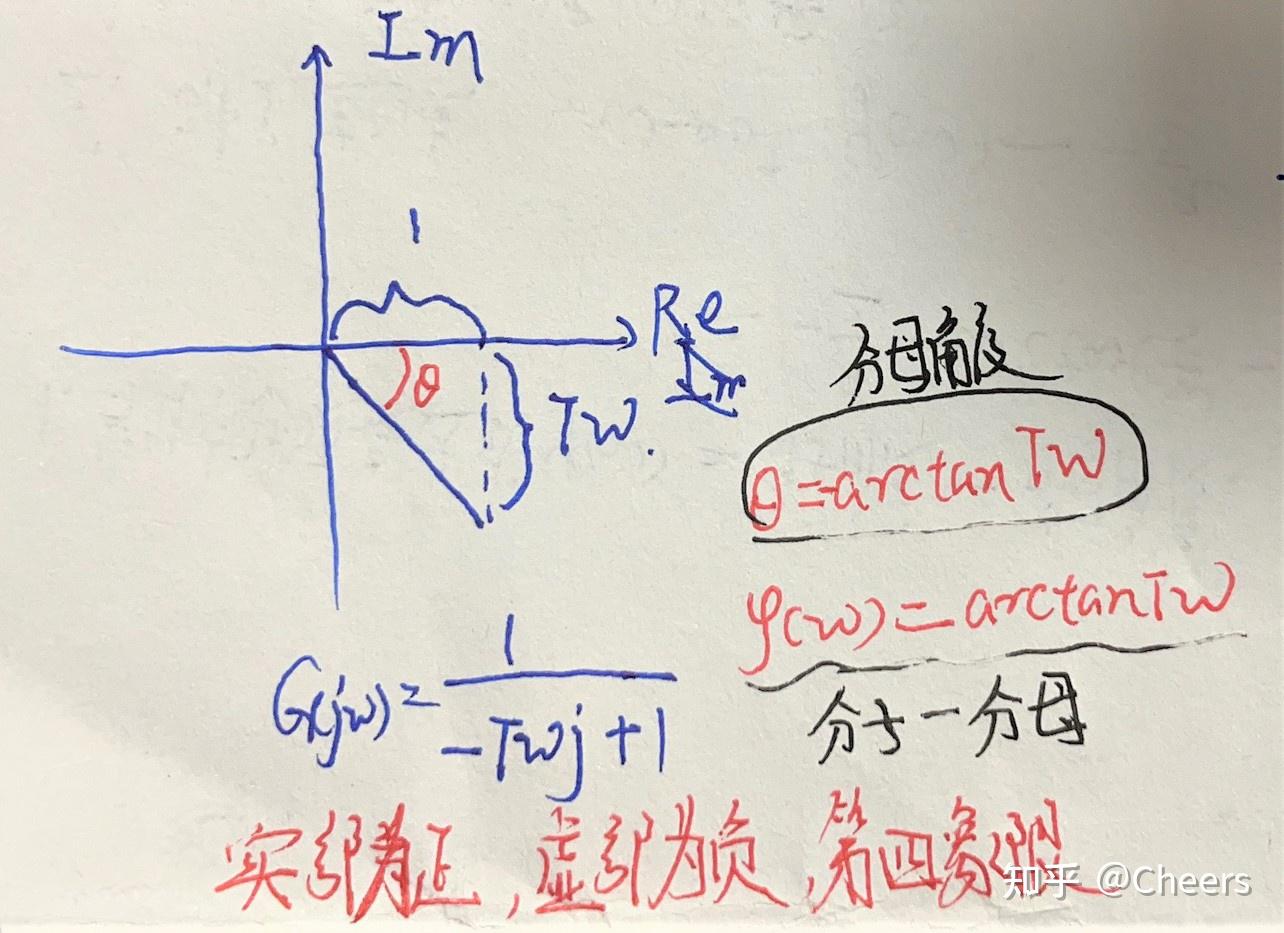 Im
1
Re
Im
θ
Tw.
分母角度
θ=-arctanTw
φ(w)=arctanTw
分子-分母
G(jw)=1/(-Twj+1)
实部为正,虚部为负,第四象限
知乎 @Cheers